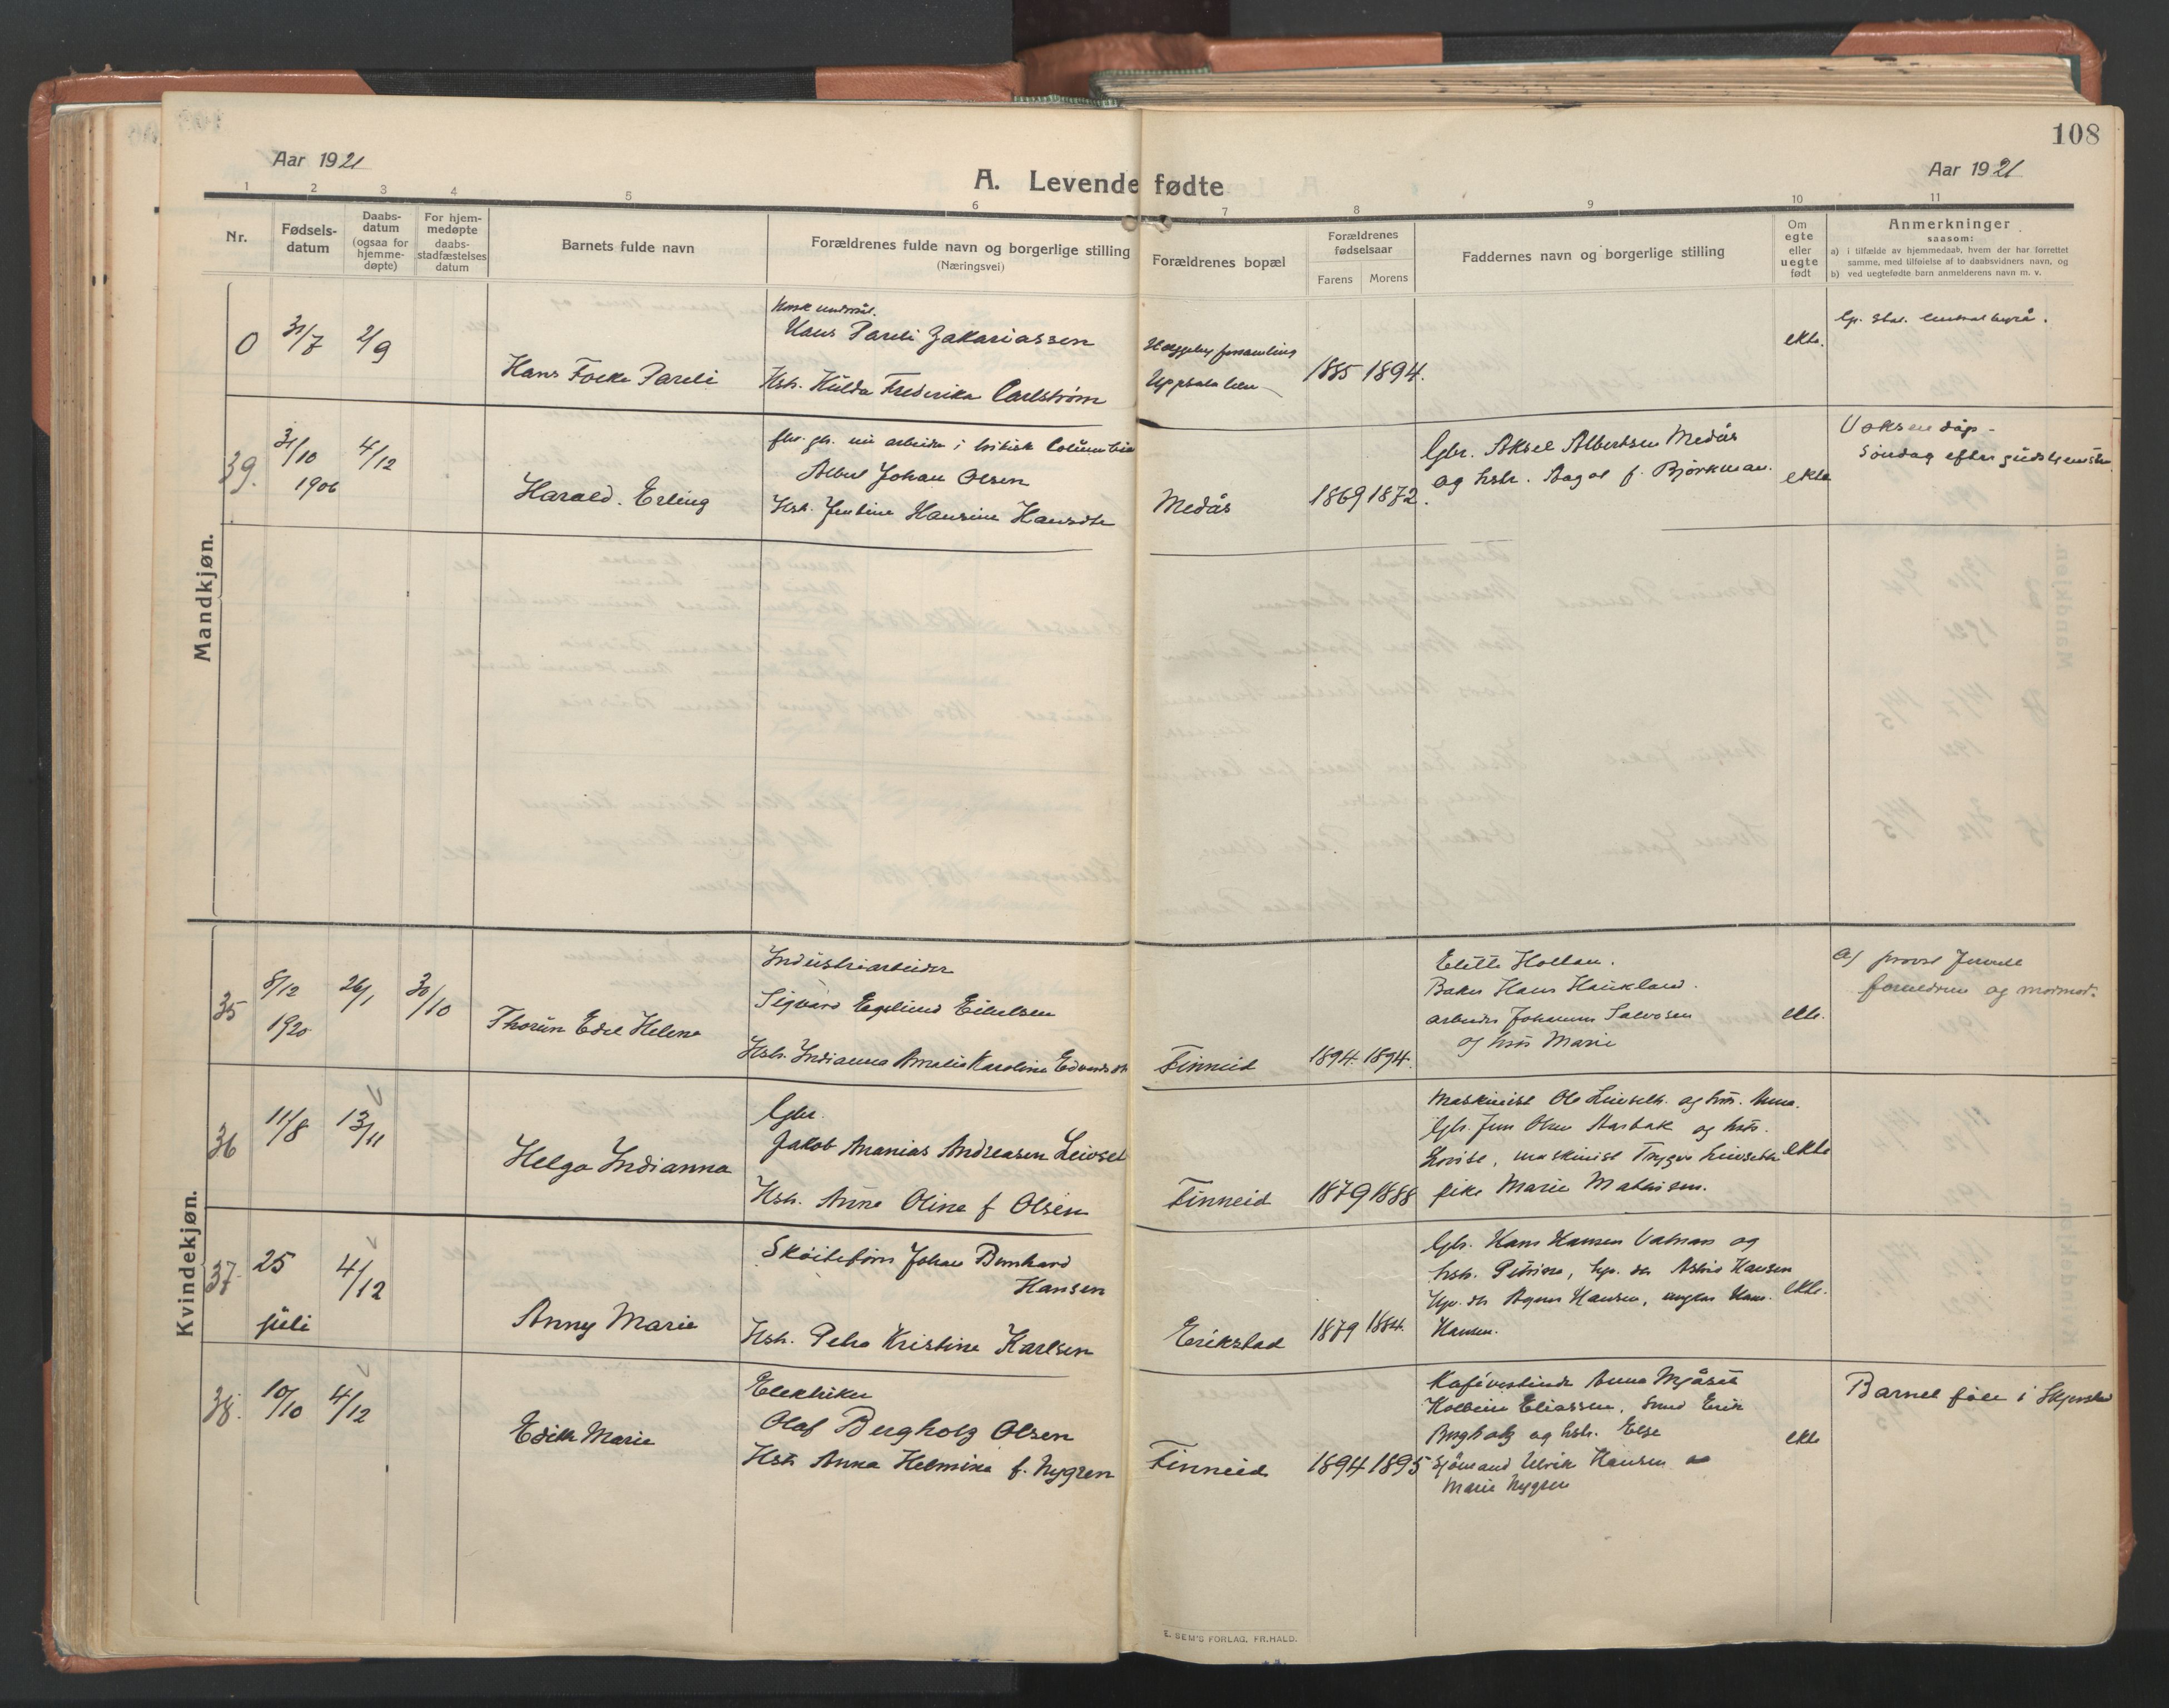 108
Aar 1921
A. Levende fødte
Aar 1921
1 2 3 4 5 6 7 8 9 10 11
Nr.
Fødsels-
datum
Daabs-
datum
(ogsaa for
hjemme-
døpte)
For hjem-
medøpte
daabs-
stadfæstelses
datum
Barnets fulde navn
Forældrenes fulde navn og borgerlige stilling
(Næringsvei)
Forældrenes bopæl
Forældrenes
fødselsaar
Farens Morens
Faddernes navn og borgerlige stilling
Om
egte
eller
uegte
født
Anmerkninger
saasom:
a) i tilfælde av hjemmedaab, hvem der har forrettet
samme, med tilføielse af to daabsvidners navn, og
b) ved uegtefødte barn anmelderens navn m. v.
Mandkjøn.
0
31/7
2/9
Hans Focke Pareli
Norsk undersåt.
Hans Pareli Zakariassen
Hstr. Hulda Frederika Carlstrøm
Häggeby församling
Uppsala län
1885 1894.
ekte.
39.
31/10
1906
4/12
Harald. Erling
Albert Johan Olsen
Hst. Jentine Hansine Hansdtr
Medås
1869 1872.
Gbr. Aksel Albertsen Medås
og hstr. Dagot f. Bjørkman.
ekte
Voksendåp -
Søndag efter gudstjeneste
Kvindekjøn.
35
8/12
1920
26/1
30/10
Thorun Edel Helene
Industriarbeider
Sigvard Engelund Eilertsen
Hstr. Indianna Amalia Karoline Edvardsdtr
Finneid
1894. 1894.
Elitte Hollan.
Baker Hans Haukland.
arbeider Johannes Salvosen
og hus Marie
ekte.
Af provst
foreldrene og mormor.
36
11/8
13/11
Helga Indianna
Gbr.
Jakob Ananias Andreasen Leivset
Hstr. Anna Olina f Olsen
Finneid
1879 1888
Maskinist Ole Leivseth. og hus. Anna.
Gbr. Jens Olsen Stasbak og hus.
Lovise, maskinist Trygve Leivseth
pike Marie Mathisen.
ekte
37
25
juli
4/12
Anny Marie
Skøitefører Johan Bernhard
Hansen
Hstr. Petra Kristine Karlsen
Erikstad
1879 1884.
Gbr. Hans Hansen Vatnan og
hstr. Petrina, gp. dtr Astrid Hansen
gp. dtr Agnes Hansen, ungkar Hans.
Hansen.
ekte.
38.
10/10
4/12
Edith Marie
Elektriker
Olaf Bergholz Olsen
Hstr Anna Helmina f. Nygren
Finneid
1894 1895
Kafévertinde Anna Mjåset
Kolbein Eliassen, Smed Erik
Bergholz og hstr. Else
Sjømand Ulrik Hansen og
Marie Nygren
ekte
Barnet født i Skjerstad
E. SEM'S FORLAG, FR.HALD.